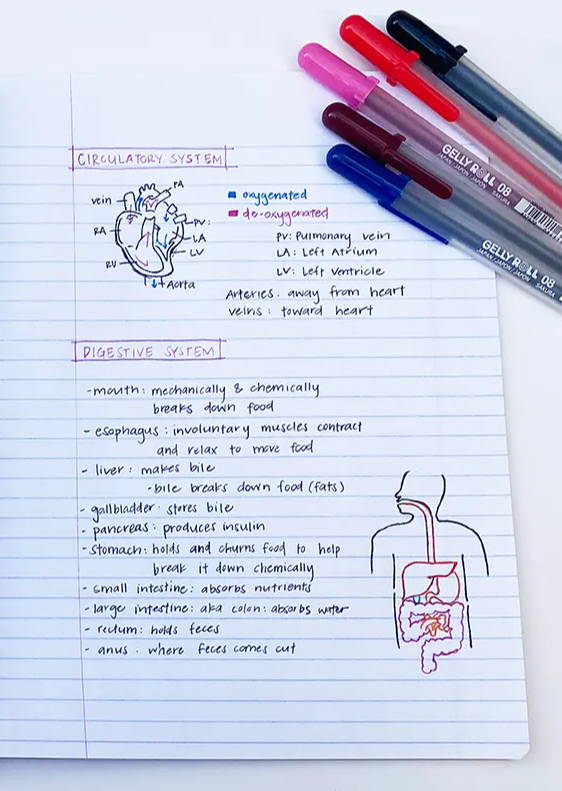 GELLY ROLL 08
JAPAN/JAPON/JAPON SAKURA
GELLY ROLL 08
JAPAN/JAPON/JAPON SAKURA
CIRCULATORY SYSTEM
PA
vein
RA
RV
PV:
LA
LV
Aorta
oxygenated
de-oxygenated
PV: Pulmonary vein
LA: Left Atrium
LV: Left Ventricle
Arteries: away from heart
veins: toward heart
DIGESTIVE SYSTEM
-mouth: mechanically & chemically
breaks down food
- esophagus: involuntary muscles contract
and relax to move food
- liver: makes bile
-bile breaks down food (fats)
- gallbladder: stores bile
- pancreas: produces insulin
- stomach: holds and churns food to help
break it down chemically
- small intestine: absorbs nutrients
- large intestine: aka colon: absorbs water
- rectum: holds feces
- anus: where feces comes out